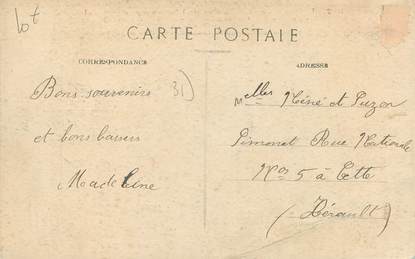 Lot
CARTE POSTALE
CORRESPONDANCE
ADRESSE
Bons souvenirs
et bons baisers
Madeleine
31)
Melles Néné et Suzon
Simonet Rue Nationale
Nos 5 à Cette
(Hérault)